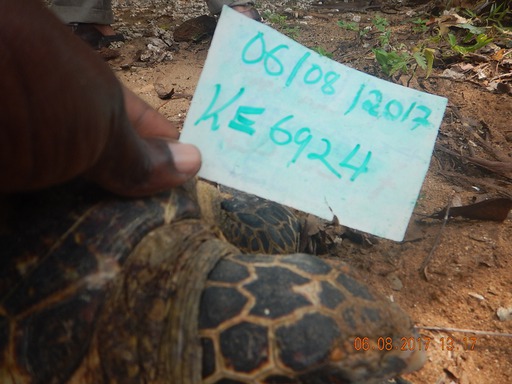 06/08/2017
KE6924
06-08-2017 13:17